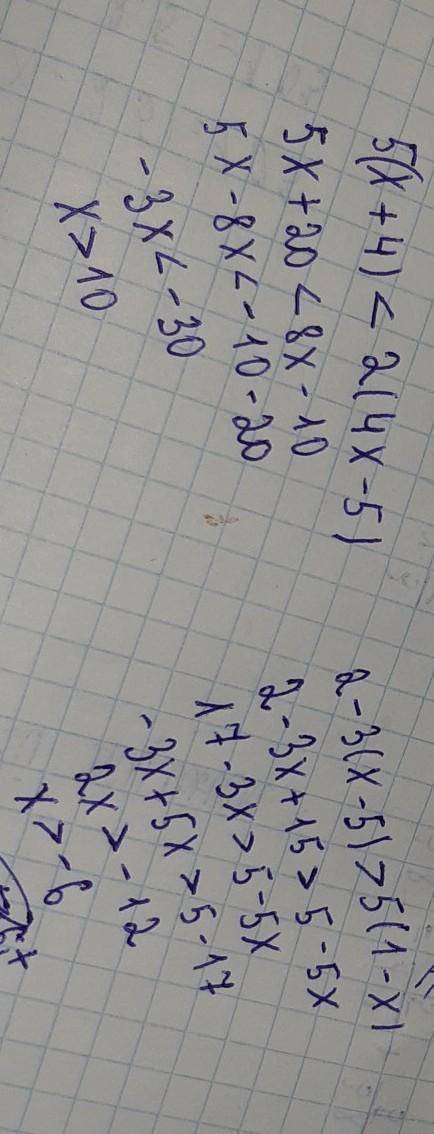 5(x+4) < 2(4x-5)
5x+20 < 8x-10
5x-8x < -10-20
-3x < -30
x > 10
2-3(x-5) > 5(1-x)
2-3x+15 > 5-5x
17-3x > 5-5x
-3x+5x > 5-17
2x > -12
x > -6